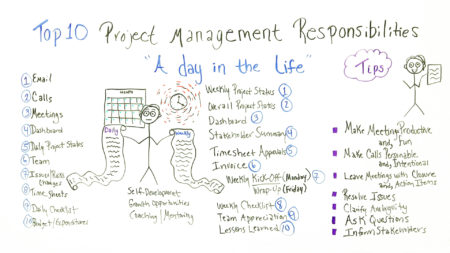 Top 10 Project Management Responsibilities
"A day in the Life"
Tips
1 Email
2 Calls
3 Meetings
4 Dashboard
5 Daily Project Status
6 Team
7 Issues/Risks
Changes
8 Time Sheets
9 Daily Checklist
10 Budget/Expenditures
MONTH
Daily
Weekly
Self-Development
Growth Opportunities
Coaching/Mentoring
Weekly Project Status 1
Overall Project Status 2
Dashboard 3
Stakeholder Summary 4
Timesheet Approvals 5
Invoice 6
Weekly Kick-Off (Monday) 7
Wrap-Up (Friday)
Weekly Checklist 8
Team Appreciation 9
Lessons Learned 10
Make Meetings Productive
and Fun
Make Calls Personable
and Intentional
Leave Meetings with Closure
and Action Items
Resolve Issues
Clarify Ambiguity
Ask Questions
Inform Stakeholders